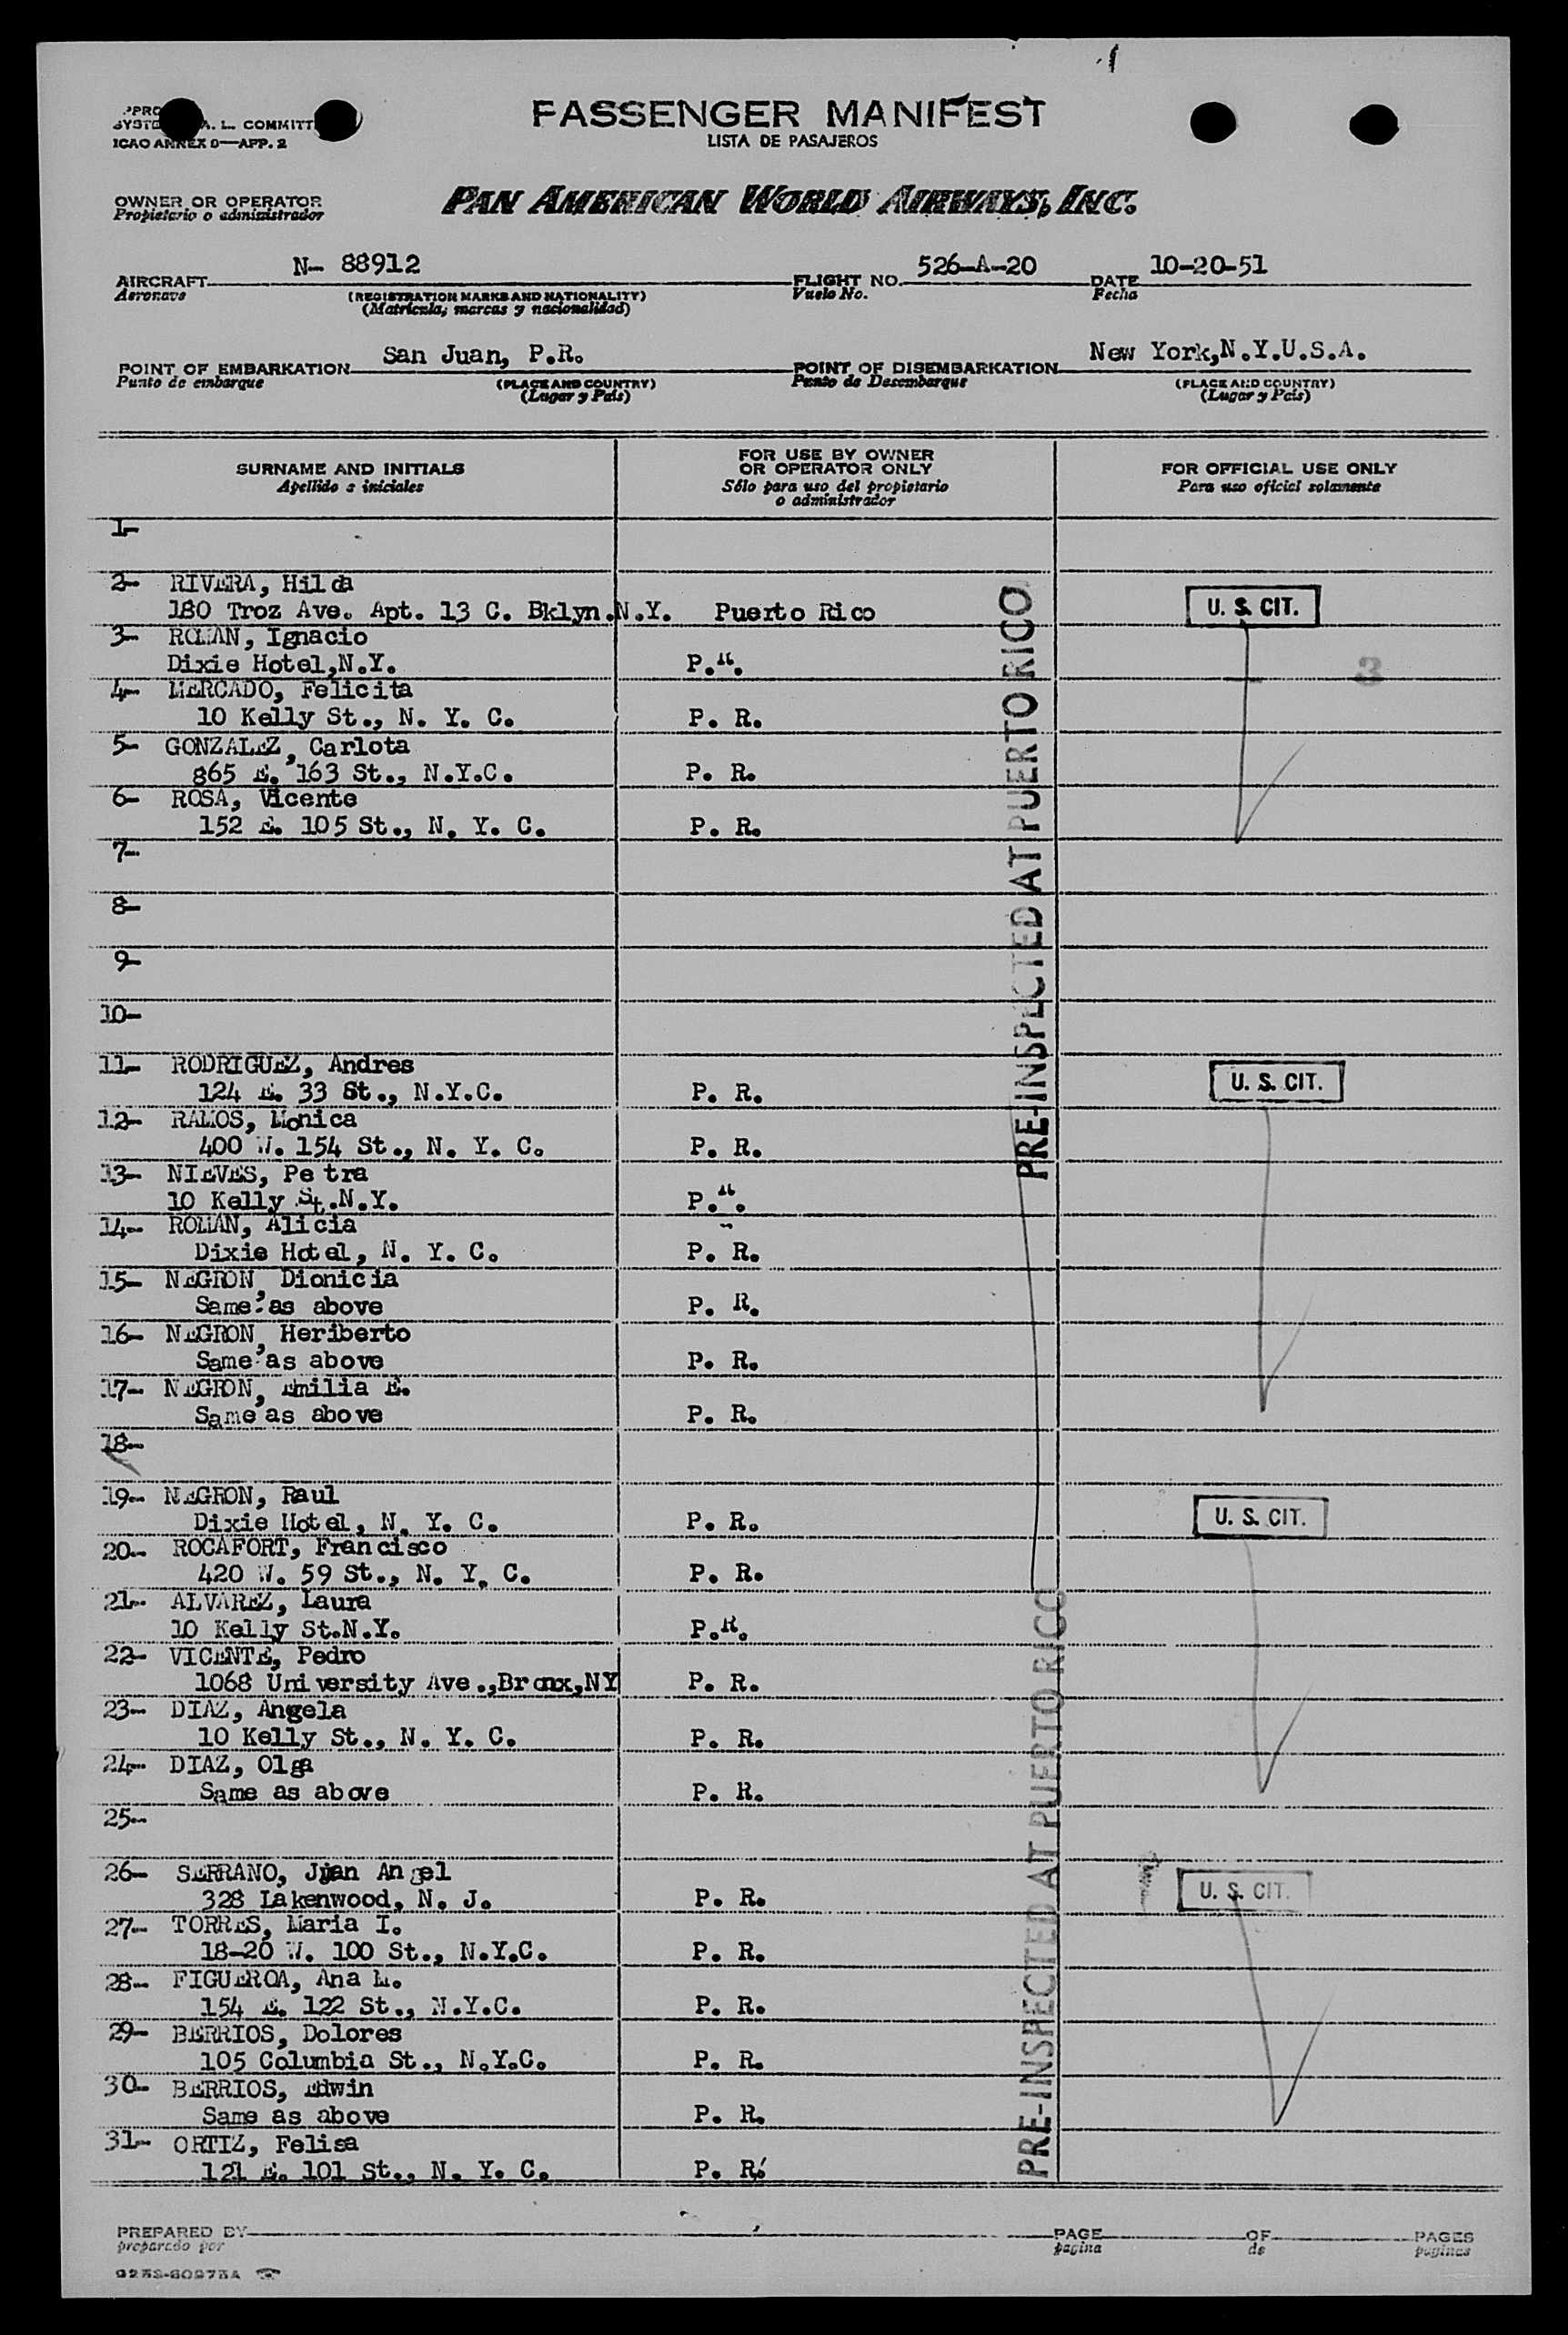 FASSENGER MANIFEST
LISTA DE PASAJEROS
A. L. COMMITT
ICAO ANNEX 9—APP. 2
OWNER OR OPERATOR
Propietario o administrador
PAN AMERICAN WORLD AIRWAYS, INC.
AIRCRAFT N- 88912 FLIGHT NO. 526-A-20 DATE 10-20-51
Aeronave (REGISTRATION MARKS AND NATIONALITY) Vuelo No. Fecha
(Matricula, marcas y nacionalidad)
POINT OF EMBARKATION San Juan, P.R. POINT OF DISEMBARKATION New York,N.Y.U.S.A.
Punto de embarque (PLACE AND COUNTRY) Punto de Desembarque (PLACE AND COUNTRY)
(Lugar y País) (Lugar y País)
SURNAME AND INITIALS FOR USE BY OWNER OR OPERATOR ONLY FOR OFFICIAL USE ONLY
Apellido e iniciales Sólo para uso del propietario o administrador Para uso oficial solamente
1-
2- RIVERA, Hilda
180 Troz Ave. Apt. 13 C. Bklyn.N.Y. Puerto Rico U. S. CIT.
3- ROMAN, Ignacio
Dixie Hotel,N.Y. P.R. 3
4- MERCADO, Felicita
10 Kelly St., N. Y. C. P. R.
5- GONZALEZ, Carlota
865 E. 163 St., N.Y.C. P. R.
6- ROSA, Vicente
152 E. 105 St., N. Y. C. P. R.
7-
8-
9-
10-
PRE-INSPECTED AT PUERTO RICO
11- RODRIGUEZ, Andres
124 E. 33 St., N.Y.C. P. R. U. S. CIT.
12- RAMOS, Monica
400 W. 154 St., N. Y. C. P. R.
13- NIEVES, Petra
10 Kelly St.N.Y. P.R.
14- ROMAN, Alicia
Dixie Hotel, N. Y. C. P. R.
15- NEGRON, Dionicia
Same as above P. R.
16- NEGRON, Heriberto
Same as above P. R.
17- NEGRON, Emilia E.
Same as above P. R.
18-
19- NEGRON, Raul
Dixie Hotel, N. Y. C. P. R. U. S. CIT.
20- ROCAFORT, Francisco
420 W. 59 St., N. Y. C. P. R.
21- ALVAREZ, Laura
10 Kelly St.N.Y. P.R.
22- VICENTE, Pedro
1068 University Ave.,Bronx,NY P. R.
23- DIAZ, Angela
10 Kelly St., N. Y. C. P. R.
24- DIAZ, Olga
Same as above P. R.
25-
26- SERRANO, Juan Angel
328 Lakenwood, N. J. P. R. U. S. CIT.
27- TORRES, Maria I.
18-20 W. 100 St., N.Y.C. P. R.
28- FIGUEROA, Ana L.
154 E. 122 St., N.Y.C. P. R.
29- BERRIOS, Dolores
105 Columbia St., N.Y.C. P. R.
30- BERRIOS, Edwin
Same as above P. R.
31- ORTIZ, Felisa
121 E. 101 St., N. Y. C. P. R.
PRE-INSPECTED AT PUERTO RICO
PREPARED BY PAGE OF PAGES
preparado por pagina de paginas